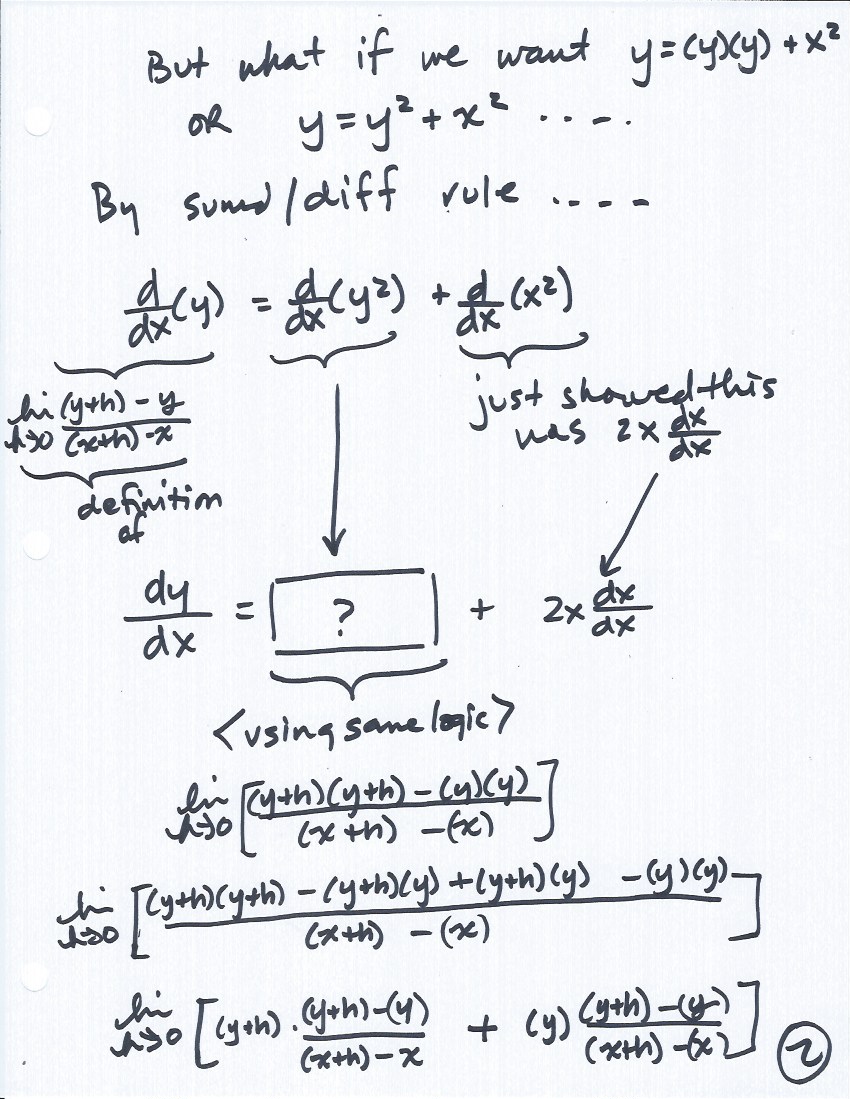 But what if we want y=(y)(y)+x²
OR y=y²+x² ....
By sum/diff rule ....
d/dx(y) = d/dx(y²) + d/dx(x²)
lim h→0 (y+h)-y/(x+h)-x
just showed this
was 2x dx/dx
definition
of
dy/dx = [?] + 2x dx/dx
<using same logic>
lim h→0 [(y+h)(y+h)-(y)(y)/(x+h)-(x)]
lim h→0 [(y+h)(y+h)-(y+h)(y)+(y+h)(y)-(y)(y)/(x+h)-(x)]
lim h→0 [(y+h)·(y+h)-(y)/(x+h)-x + (y)(y+h)-(y)/(x+h)-(x)]
2